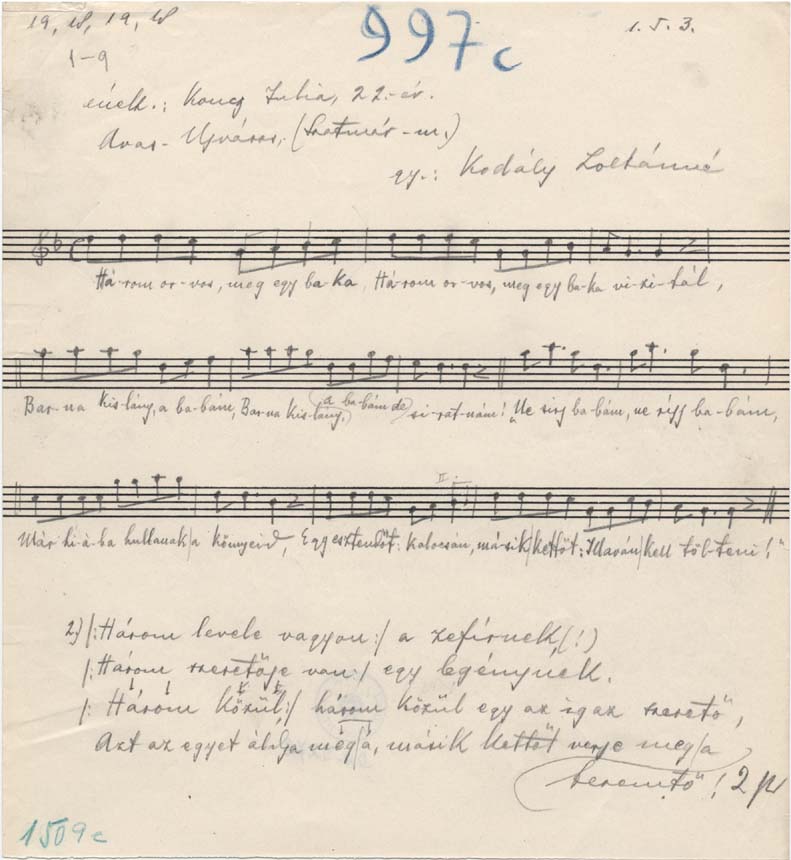 19, 18, 19, 18
997c
1.5.3.
1-9
ének.: Koncz Julia, 22.-év.
Avas-Ujváros, (Szatmár-m.)
gy.: Kodály Zoltánné
Há-rom or-vos, meg egy ba-ka, Há-rom or-vos, meg egy ba-ka vi-zi-tál,
Bar-na kis-lány, a ba-bám, Bar-na kis-lány, a ba-bám de si-rat-nám! "Ne sirj ba-bám, ne sirj ba-bám,
II.
Már hi-á-ba hullanak/a könnyeid, Egy esztendőt: Kalocsán, má-sik/kettőt: Illaván/kell töl-teni!"
2.) /:Három levele vagyon:/ a zefírnek(!)
/:Három szeretője van:/ egy legénynek.
/: Három közül:/ három közül egy az igaz szerető,
Azt az egyet áldja meg/a, másik kettőt verje meg/a
teremtő!
1509c